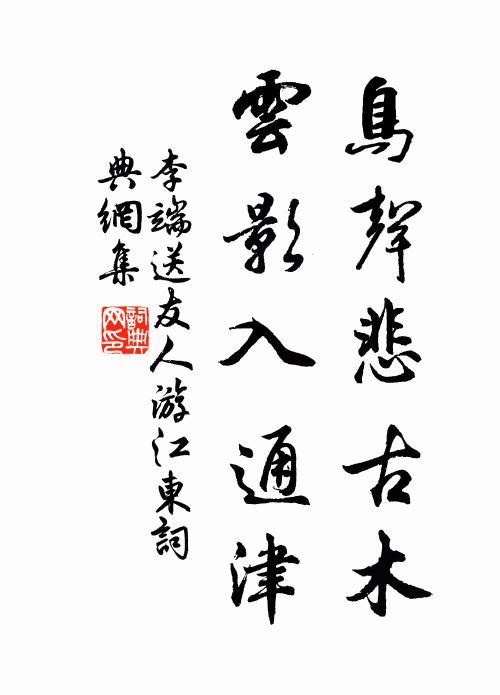 鳥聲悲古木
雲影入通津
李端送友人游江東詞
典網集
詞典网印